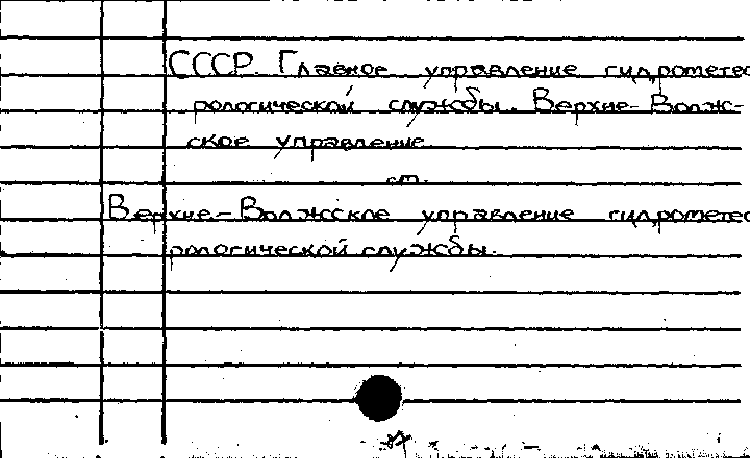 СССР. Главное управление гидрометео
рологической службы. Верхне-Волж-
ское управление.
см.
Верхне-Волжское управление гидрометео
рологической службы.